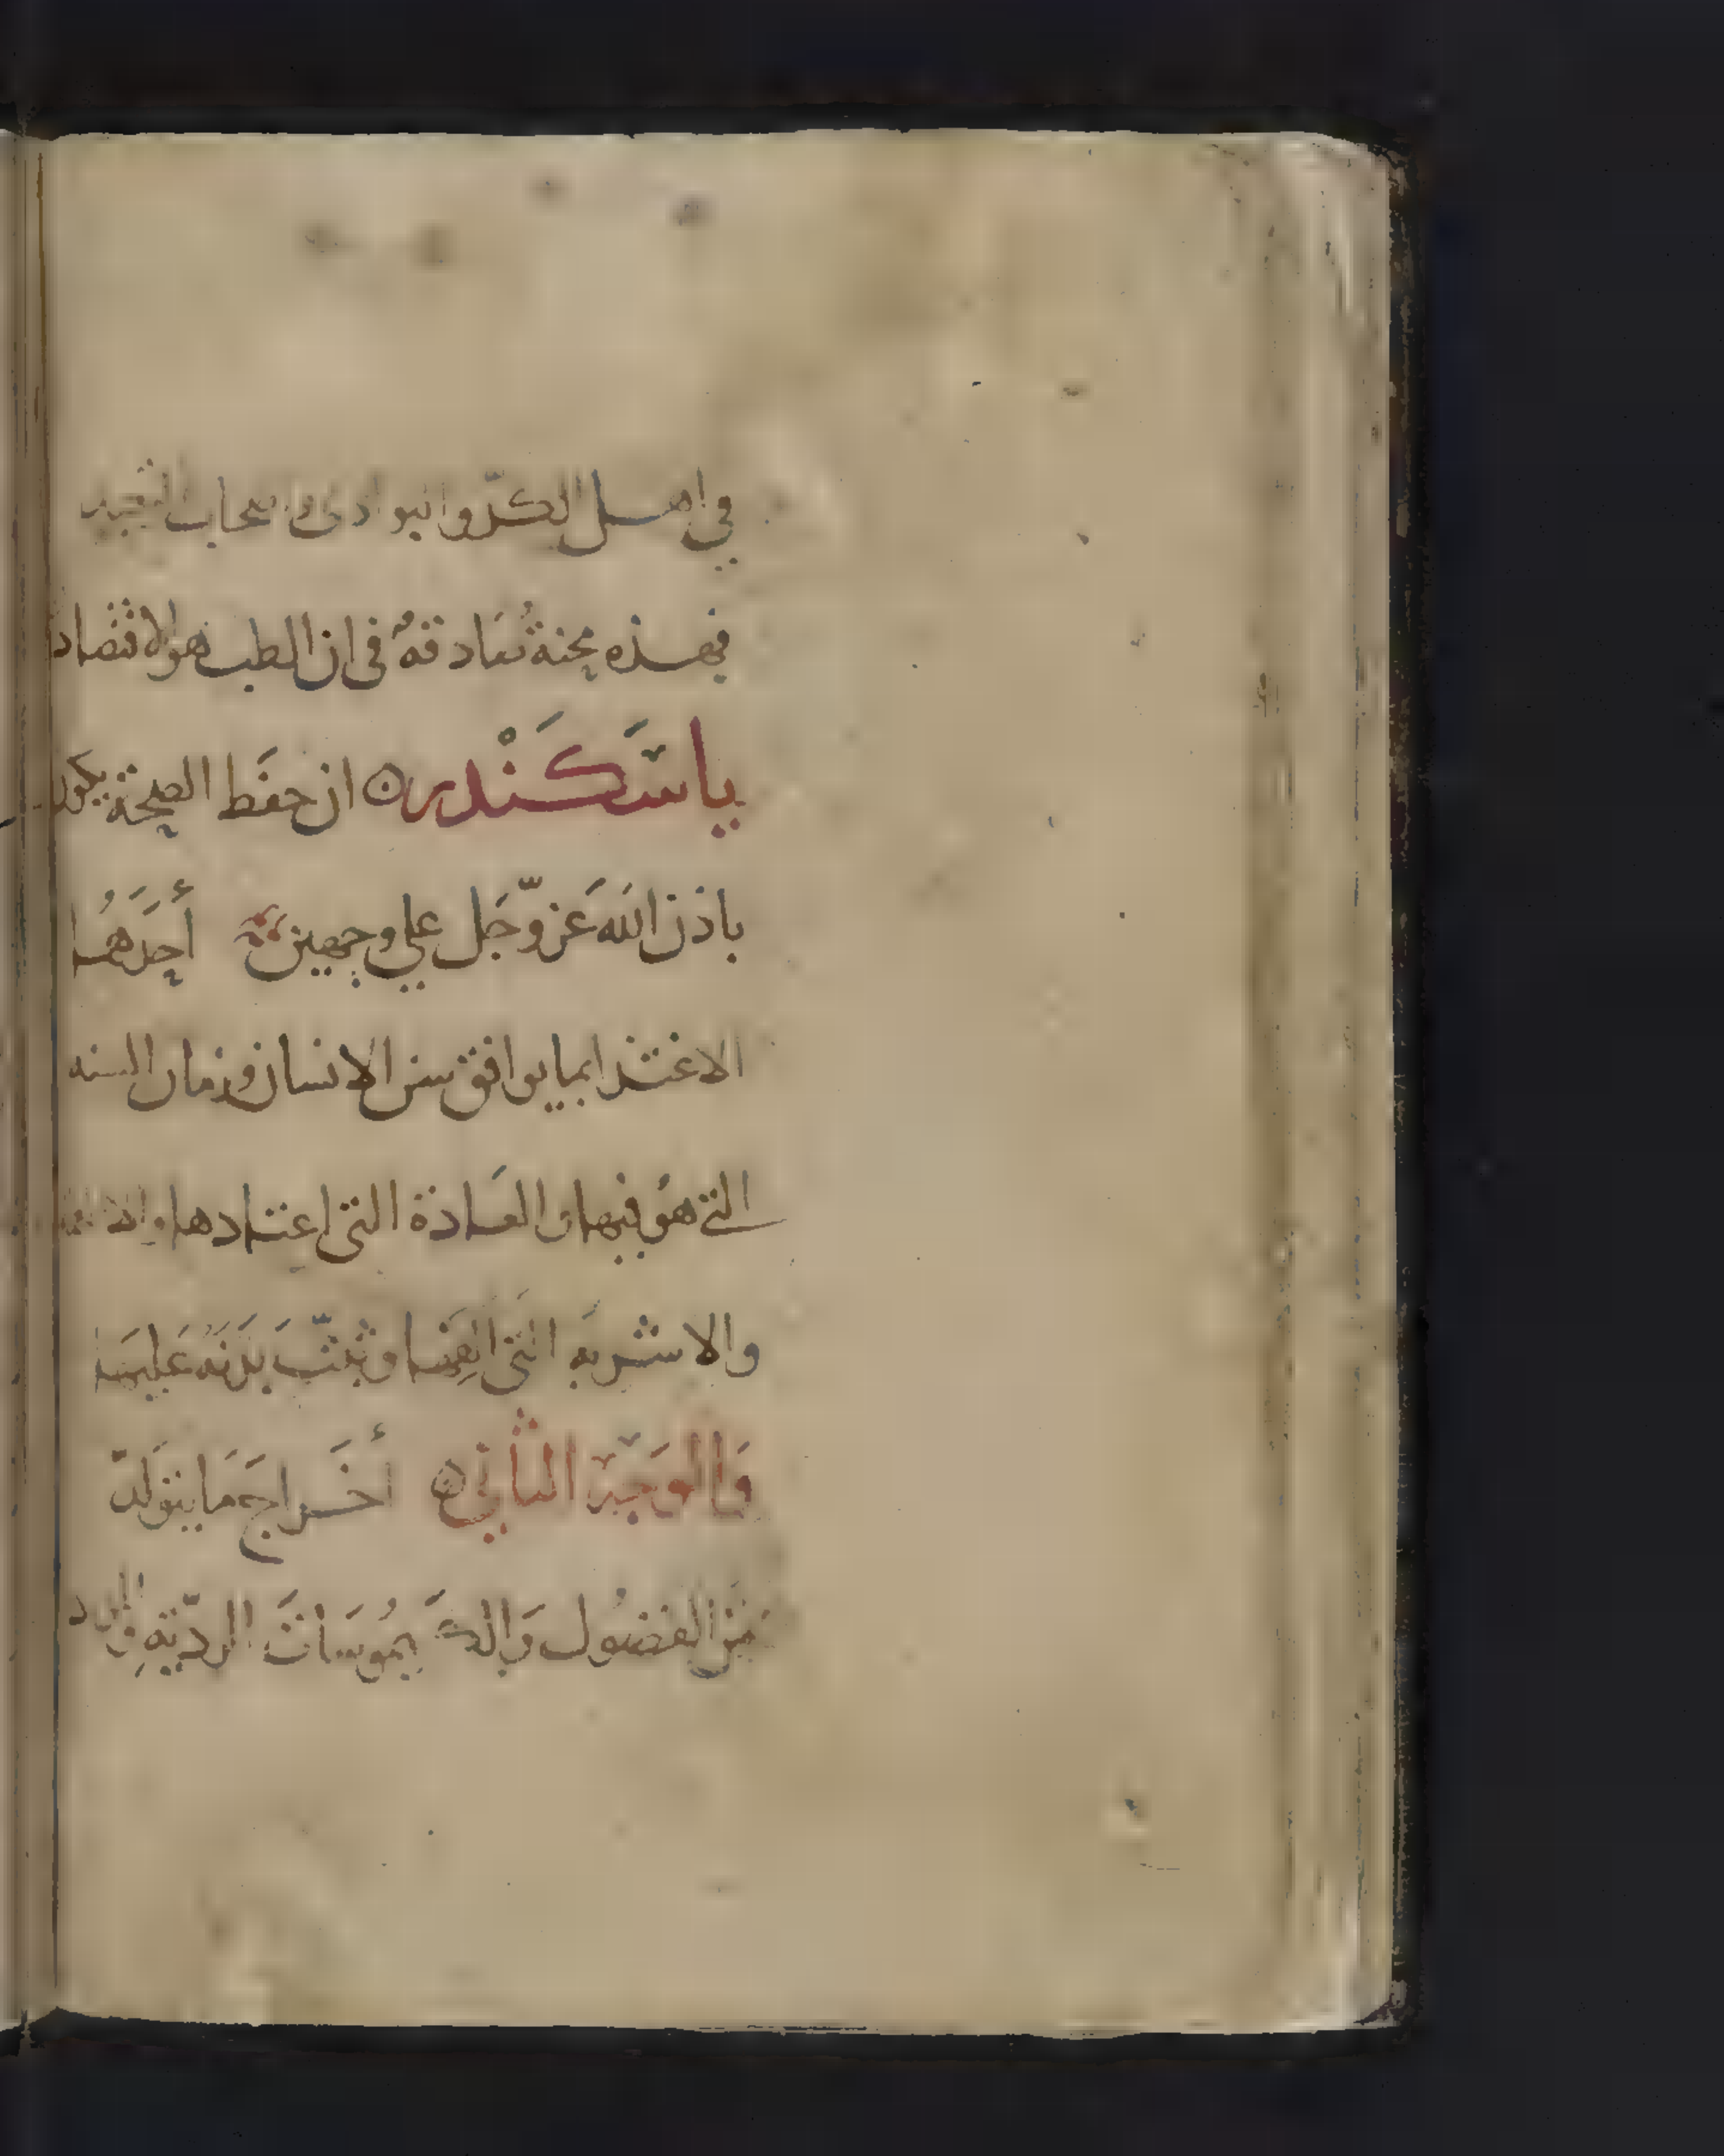 في اهل الكدّ والبوادى واصحاب
فهذه محنة صادقةٌ في ان الطب هو الاقتصاد
ياسَكَنْدر ان حفَظ الصحة يكون
باذن الله عَز وّجَل علي وجهين أَحَدَهُما
الاغتذا بما يوافق سن الانسان وزمان السنه
التي هوُ فيها والعَادة التي اعتادها
والاشربَه التَي الَفِها ونبتَّ بَدَنَه عَليهَا
وَالوَجه الثاني أخَراجَ مَا يتوَلدّ
مَن الفضُول وَالكَيمُوسَات الردّيّه